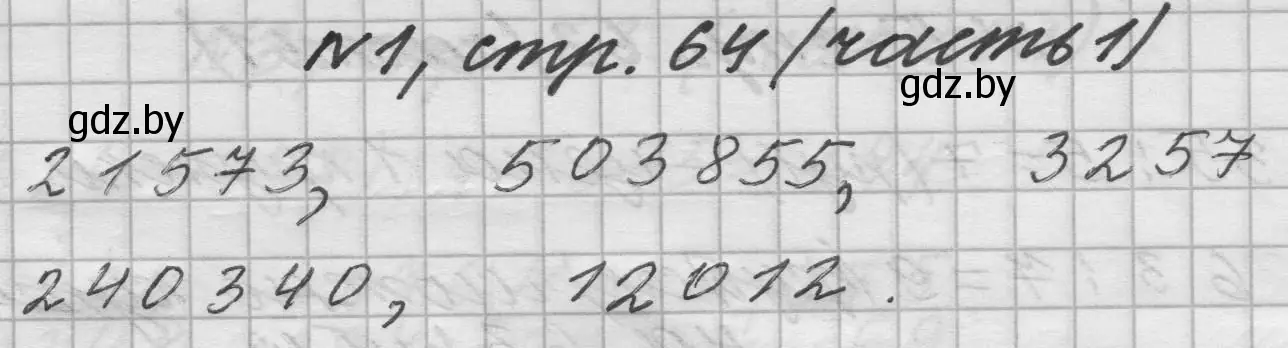 N1, стр. 64 (часть 1)
gdz.by
gdz.by
21573, 503855, 3257
240340, 12012.